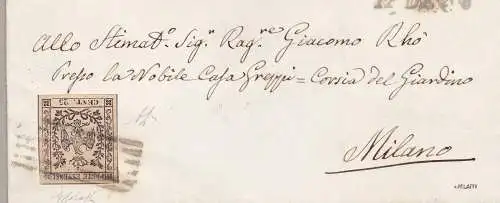 17 DEC
Allo Stimat.º Sig.ⁿ Rag.ʳᵉ Giacomo Rhò
Presso la Nobile Casa Greppi = Corsia del Giardino
CENT. 25
Milano